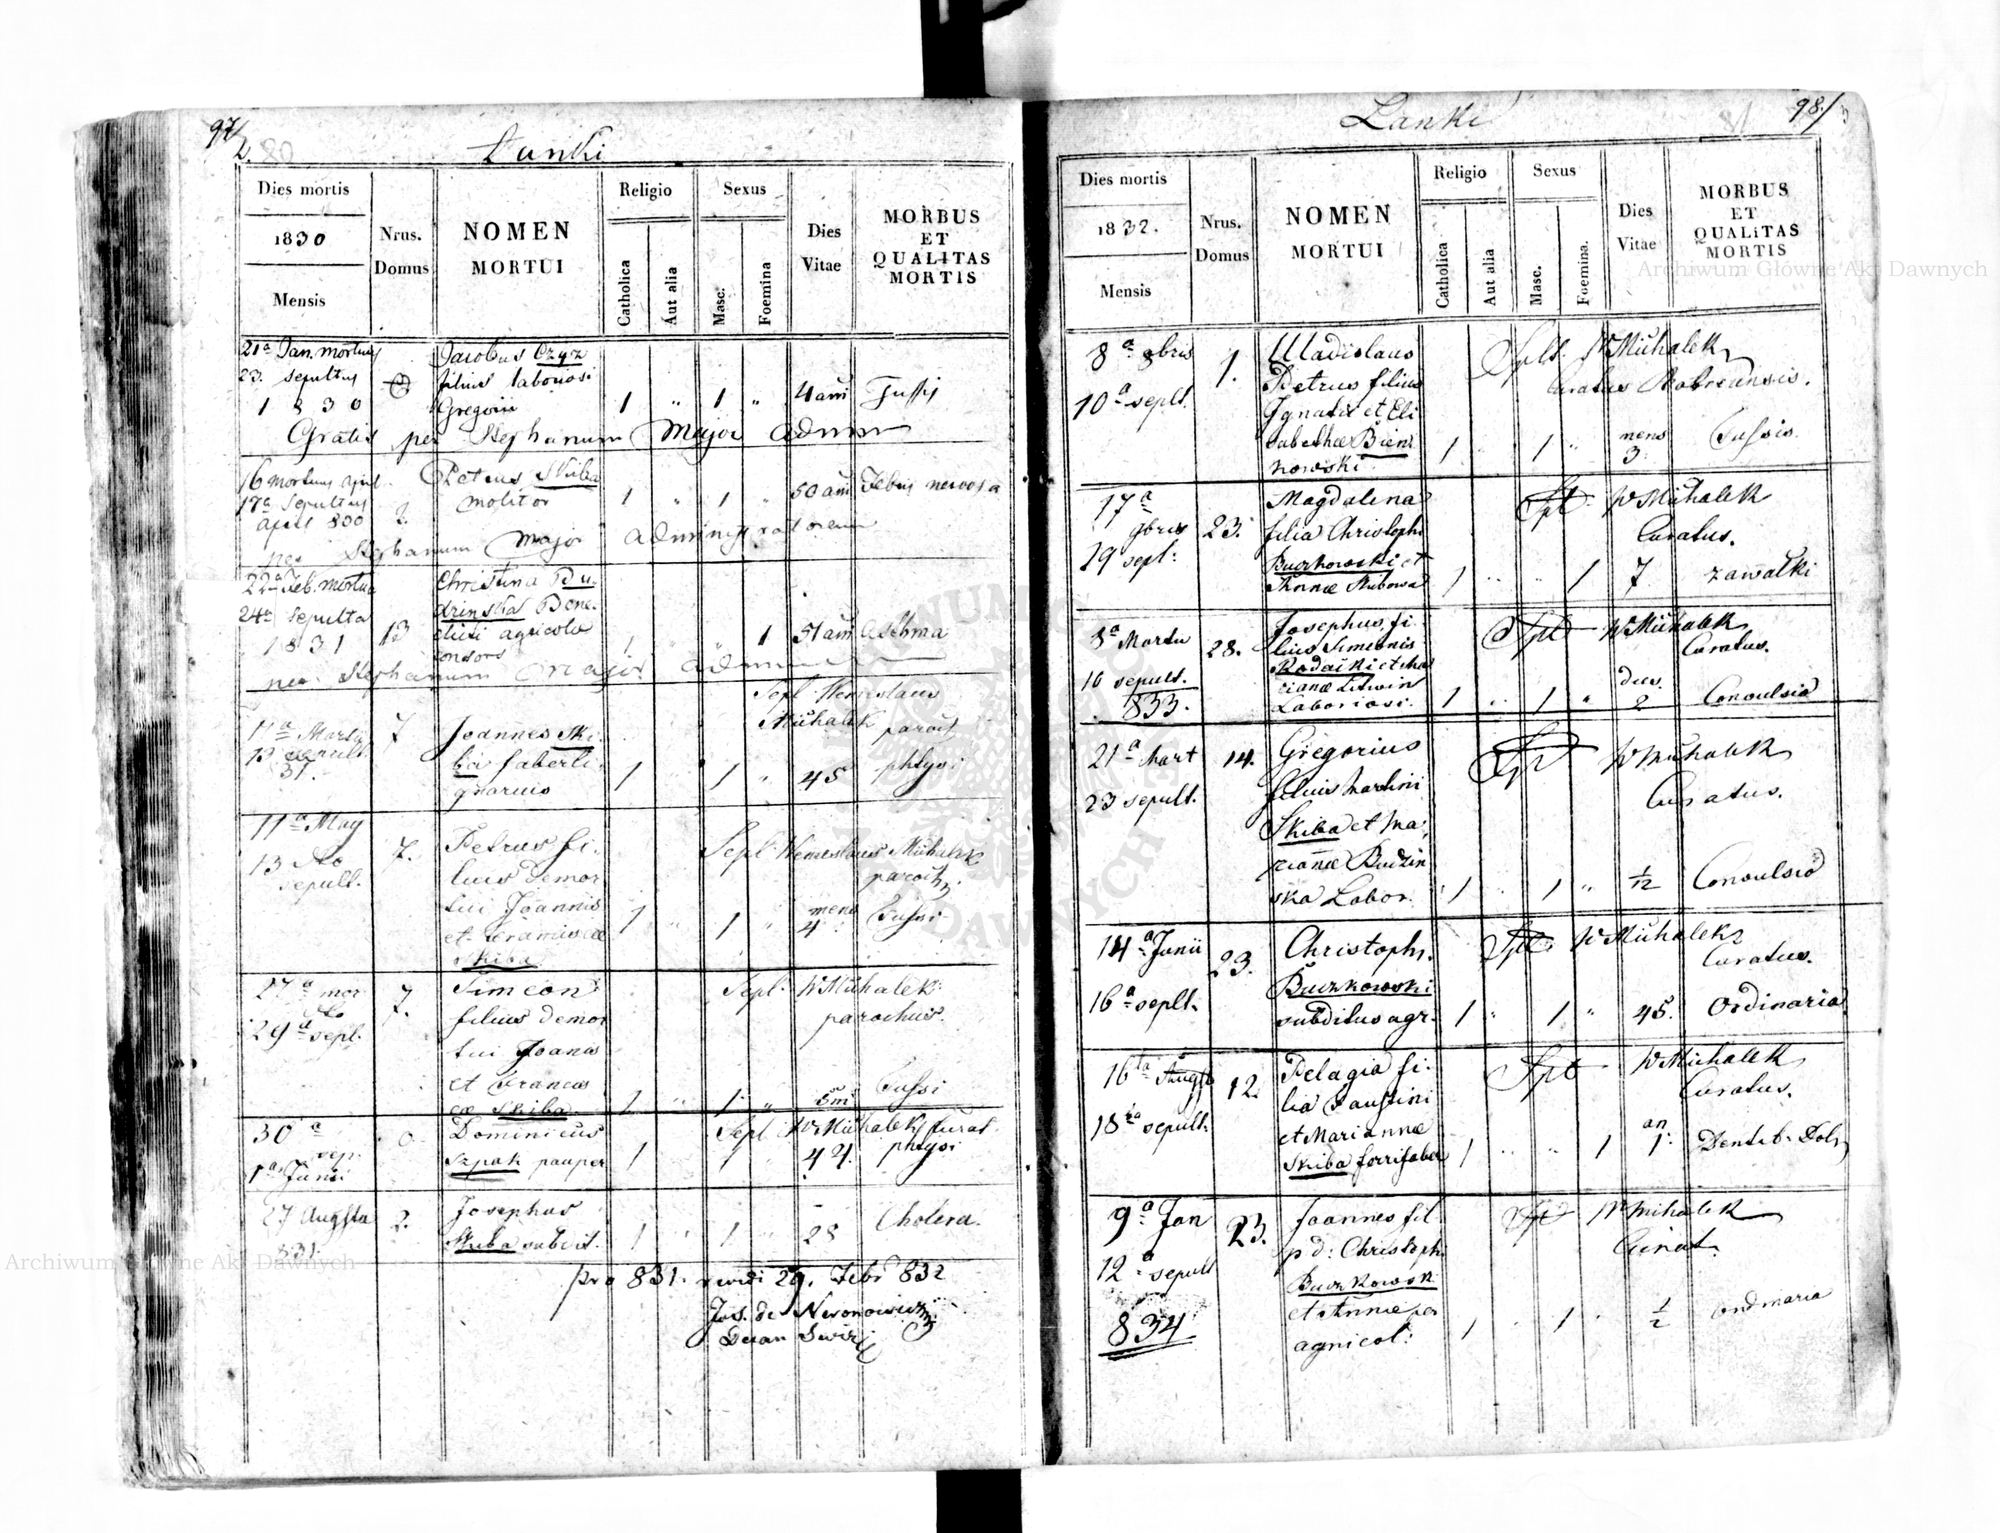 97
80
Lanki
Dies mortis
1830
Mensis
Nrus.
Domus
NOMEN
MORTUI
Religio
Catholica
Aut alia
Sexus
Masc.
Foemina
Dies
Vitae
MORBUS
ET
QUALITAS
MORTIS
21a Jan. mortuus
23. sepultus
1830
Jacobus Czycz
filius laboriosi
Gregorii
1 " 1 " 4 am Tussis
Gratis per Stephanum Major adm
16 mortuus april
17a sepultus
april 830
2.
Petrus Skiba
molitor
1 " 1 " 50 am Febris nervosa
per Stephanum Major administratorem
22a Feb. mortua
24a sepulta
1831
13
Christina Bu
drinska Bene
dicti agricola
consors
1 " 1 51 am Asthma
per Stephanum Major
11a Martii
13 sepult.
31.
7
Sepl. Wenceslaus
Michalek paroch
Joannes Ski
ba faberli
gnarius
1 " 1 " 45 phtysi
11a May
13 sepult.
7.
Petrus fi
lius demor
tui Joannis
et Francisce
Skiba
Sepl. Wenceslaus Michalek
paroch
1 " 1 " mens 4 Tussi
27a mor
29a sepl.
7.
Simeon
filius demor
tui Joanis
et Francis
cae Skiba
Sepl. W Michalek
parochus.
1 " 1 " 6 m Tussi
30a
1a Junii
Dominicus
Szpak pauper
Sepl. W Michalek Curat.
1 1 " 42. phtysi
27 Augsta
831.
2.
Josephus
Skiba subdit.
1 " 1 " 28 Cholera.
pro 831. revidi 29. Febr 832
Jos. de
Decan Swirz
98
81
Lanki
Dies mortis
1832.
Mensis
Nrus.
Domus
NOMEN
MORTUI
Religio
Catholica
Aut alia
Sexus
Masc.
Foemina.
Dies
Vitae
MORBUS
ET
QUALITAS
MORTIS
8a
10a sepult.
1.
Uladislaus
Petrus filius
Ignatii et Eli
sabethae Bien
kowski.
Splt. W Michalek
Curatus Bobrecensis.
1 1 " mens 3 Tussis.
17a
19 sept:
23.
Magdalena
filia Christophi
Buczkowski et
Annae Skibowa
Spt. W Michalek
Curatus.
1 " " 1 7 zawalki
8a Martii
10 sepult.
833.
28.
Josephus fi
lius Simeonis
Rodaiki et Ma
rianae Litwin
Laboriosi.
Spt W Michalek
Curatus.
1 " 1 " dies 2 Convulsia
21a Mart
23 sepult.
14.
Gregorius
filius Martini
Skiba et Ma
rianae Budzin
ska Labor.
Spt W Michalek
Curatus.
1 " 1 " 1/12 Convulsio
14a Junii
16a seplt.
23.
Christoph.
Buczkowski
subditus agr.
Spt W Michalek
Curatus.
1 " 1 " 45. Ordinaria
16ta Augst
18ta sepult.
12.
Pelagia fi
lia Faustini
et Mariannae
Skiba ferrifaber
Spt W Michalek
Curatus.
1 " " 1 an 1. Dentit. Dol
9a Jan
12a sepult
834
23.
Joannes fil.
p d: Christoph
Buczkowsk
et Annae
agricol:
Spt W Michalek
Curat.
1 " 1 " 1/2 ordinaria
Archiwum Główne Akt Dawnych
Archiwum Główne Akt Dawnych